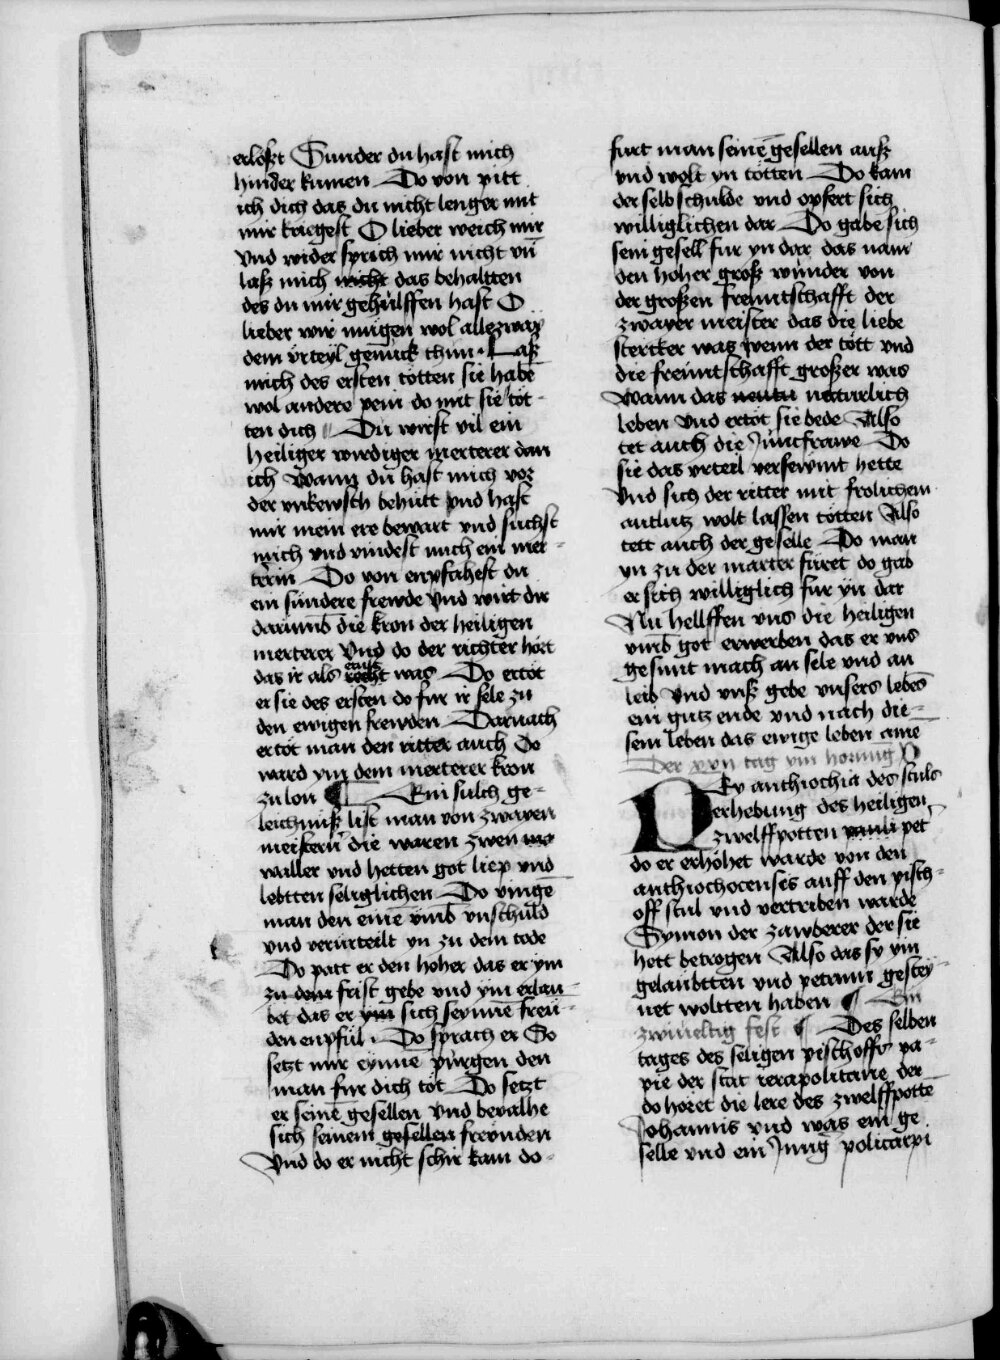 erlößt Sunder du hast mich
hinder kumen Do von pitt
ich dich das du nicht lenger mit
mir kriegest O lieber weich mir
vnd wider sprich mir nicht vn̄
laß mich nicht das behaltten
des du mir gehülffen hast O
lieber wir mügen wol allezway
dem vrteyl genück thun · Laß
mich des ersten tötten sie habē
wol andere pein do mit sie töt-
ten dich Du wirst vil ein
heiliger wirdiger merterer dan
ich Wann du hast mich vor
der vnkewsch behütt vnd hast
mir mein ere bewart vnd suchst
mich vnd vindest mich ein mer-
terin Do von enpfahest du
ein sundere frewde vnd wirt dir
darumb die kron der heiligen
merterer Vnd do der richter hört
das ir als ernst was Do ertöt
er sie des ersten do fur ir sele zu
den ewigen frewden Darnach
ertöt man den ritter auch Do
ward ym dem merterer kron
zu lon ¶ Ein sulch ge-
leichnuß list man von zwayen
meistern die waren zwen
waller vnd hetten got liep vnd
lebtten seliglichen Do vingē
man den eine vmb vnschuld
vnd verurteilt yn zu dem tode
Do patt er den hoher das er ym
zu dem frist gebe vnd ym erlau-
bet das er ym sich seynnē freü-
den enpfül · Do sprach er So
setzt mir eynne pürgen den
man fur dich töt Do setzt
er seinē gesellen vnd bevalhe
sich seinem gesellen freünden
Vnd do er nicht schir kam do-
furt man seinē gesellen auß
vnd wolt yn tötten Do kam
der selb schulde vnd opfert sich
williglichen dar Do gabe sich
sein gesell fur yn dar das nam
den hoher groß wunder von
der großen freuntschafft der
zwayer meister das die liebe
stercker was wenn der tött vnd
die freuntschafft großer was
Wann das naturlich
leben Vnd ertöt sie bede Also
tet auch die Juncfrawe Do
sie das vrteil versewmt hette
Vnd sich der ritter mit frolichem
antlutz wolt lassen tötten Also
tett auch der geselle Do man
yn zu der marter füret do gab
er sich williglich fur yn dar
Nu hellffen vns die heiligen
vmb got erwerben das er vns
gesunt mach an sele vnd an
leib Vnd vnß gebe vnsers lebēs
ein gutz ende vnd nach die-
sem leben das ewige leben ame
Der xxii tag ym hornung
Ey anthiochia des stuls
erhebung des heiligen
zwelffpotten pauli pet
do er erhöhet warde von den
anthiochocenses auff den pisch-
off stul vnd vertriben warde
Symon der zawberer der sie
hett betrogen Also das sy ym
gelaubtten vnd petrum gestey-
net woltten haben ¶ Ein
zwineltig fest ¶ Des selben
tages des seligen pischoffs pa-
pie der stat ierapolitane der
do höret die lere des zwelffpottē
Johannis vnd was ein ge
selle vnd ein Jung policarpi